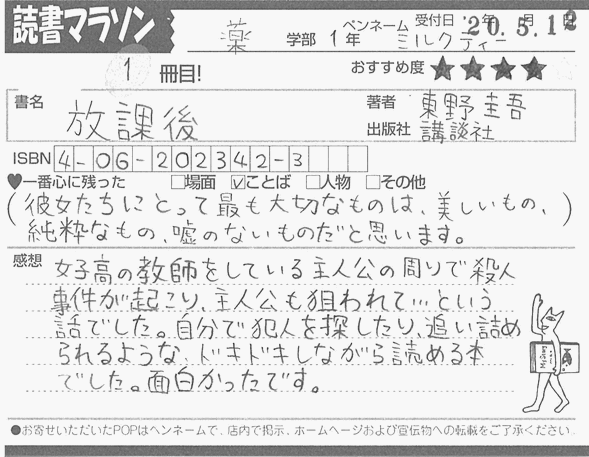 読書マラソン
薬 学部 1年 ペンネーム ミルクティー 受付日 '20.5.12
1 冊目! おすすめ度 ★★★★
書名 放課後 著者 東野圭吾
出版社 講談社
ISBN 4-06-202342-3
♥一番心に残った □場面 ☑ことば □人物 □その他
(彼女たちにとって最も大切なものは、美しいもの、
純粋なもの、嘘のないものだと思います。)
感想 女子高の教師をしている主人公の周りで殺人
事件が起こり、主人公も狙われて…という
話でした。自分で犯人を探したり、追い詰め
られるような、ドキドキしながら読める本
でした。面白かったです。
●お寄せいただいたPOPはペンネームで、店内で掲示、ホームページおよび宣伝物への転載をご了承ください。